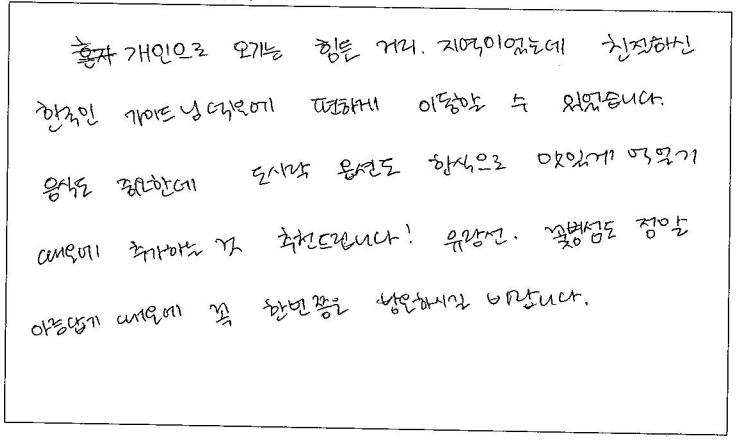 혼자 개인으로 오기는 힘든 거리. 지역이었는데 친절하신
한국인 가이드님 덕분에 편하게 이동할 수 있었습니다.
음식도 중요한데 도시락 옵션도 한식으로 맛있게 먹었기
때문에 추가하는 것 추천드립니다! 유람선. 꽃병섬도 정말
아름답기 때문에 꼭 한번쯤은 방문하시길 바랍니다.